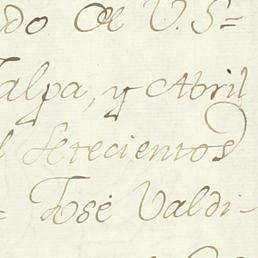 do de V. S=
alpa, y Abril
l Setecientos
= José Valdi-